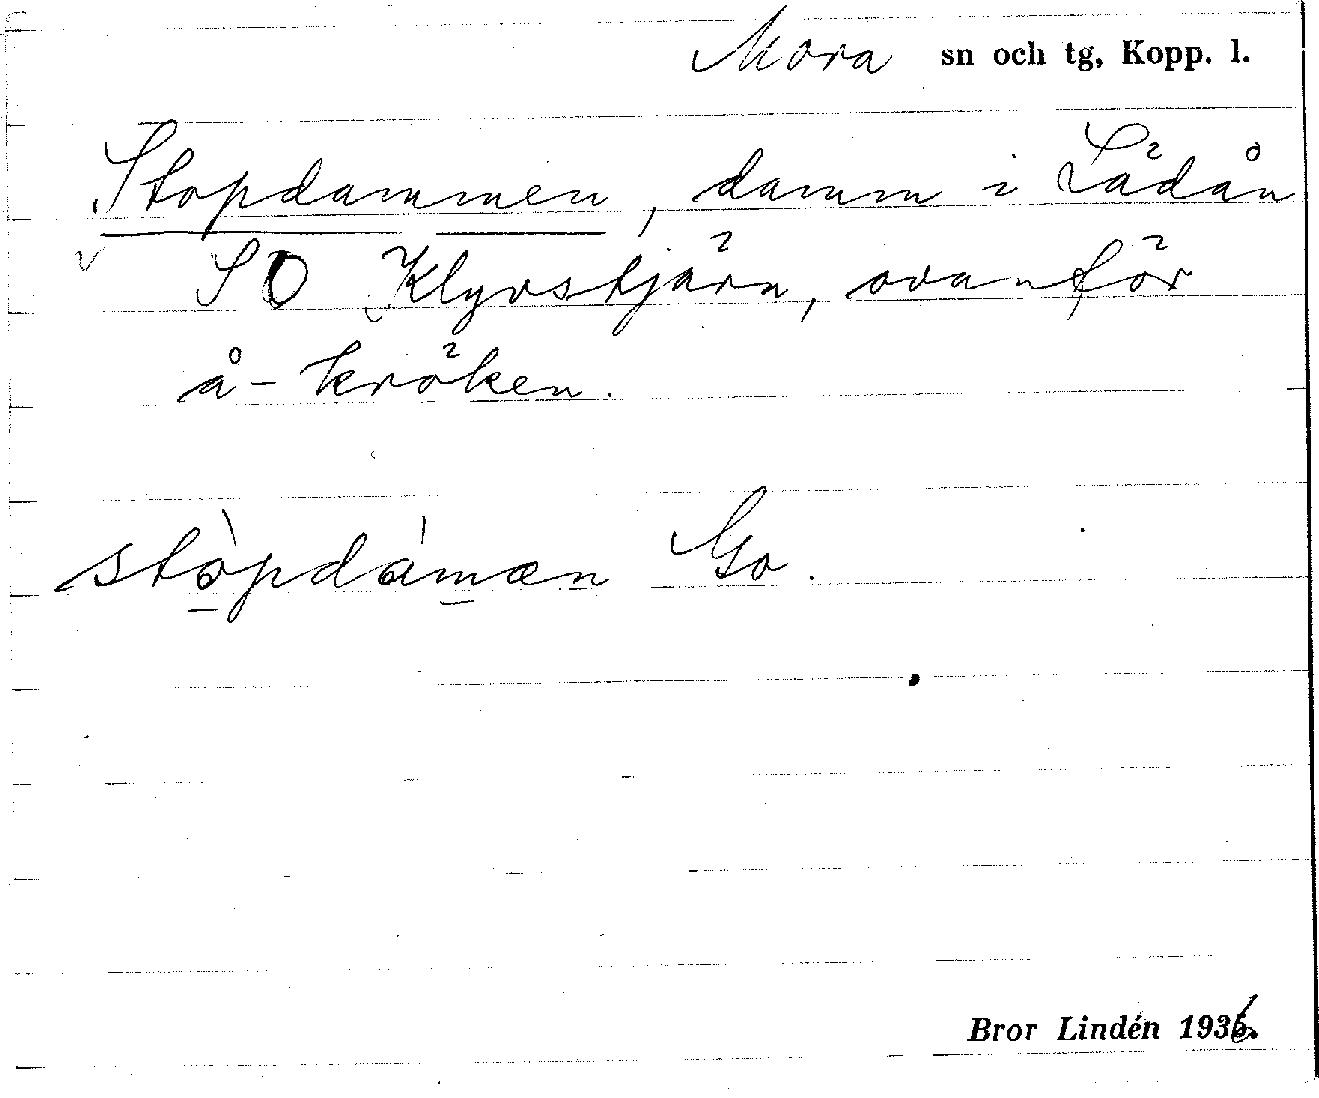 Mora sn och tg, Kopp. l.
Stopdammen, damm i Lädån
SO Klyvstjärn, ovanför
å-kröken.
stòpdámæn Go.
Bror Lindén 1936.